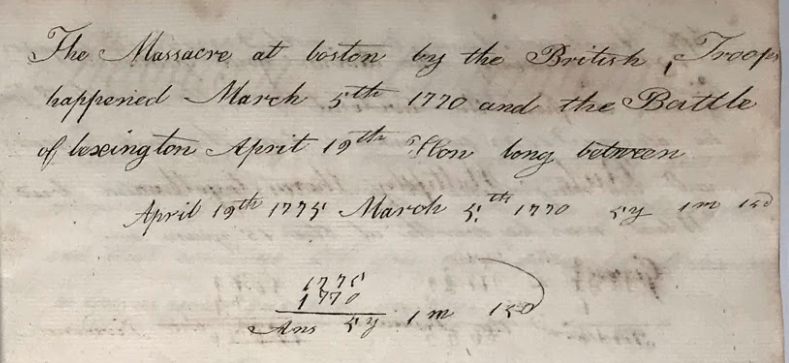 The Massacre at boston by the British, Troops
happened March 5th 1770 and the Battle
of lexington April 19th How long between
April 19th 1775 March 5th 1770 5y 1m 15D
1775
1770
Ans 5y 1m 15D